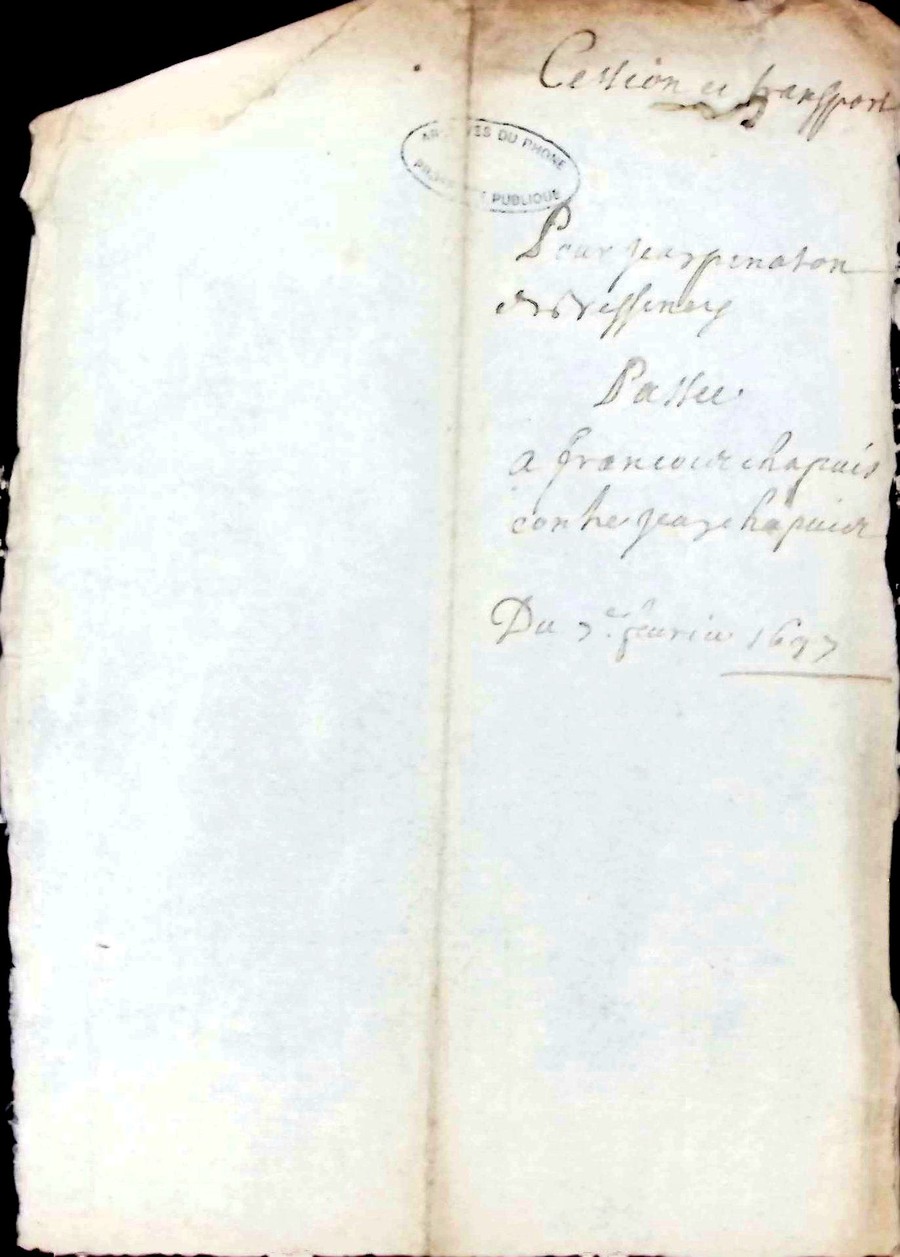 Cession et transport
ARCHIVES DU RHONE
PROPRIÉTÉ PUBLIQUE
Pour jean pinaton
de
Passee
a francois chapuis
contre jean chapuis
Du 7e feurier 1697